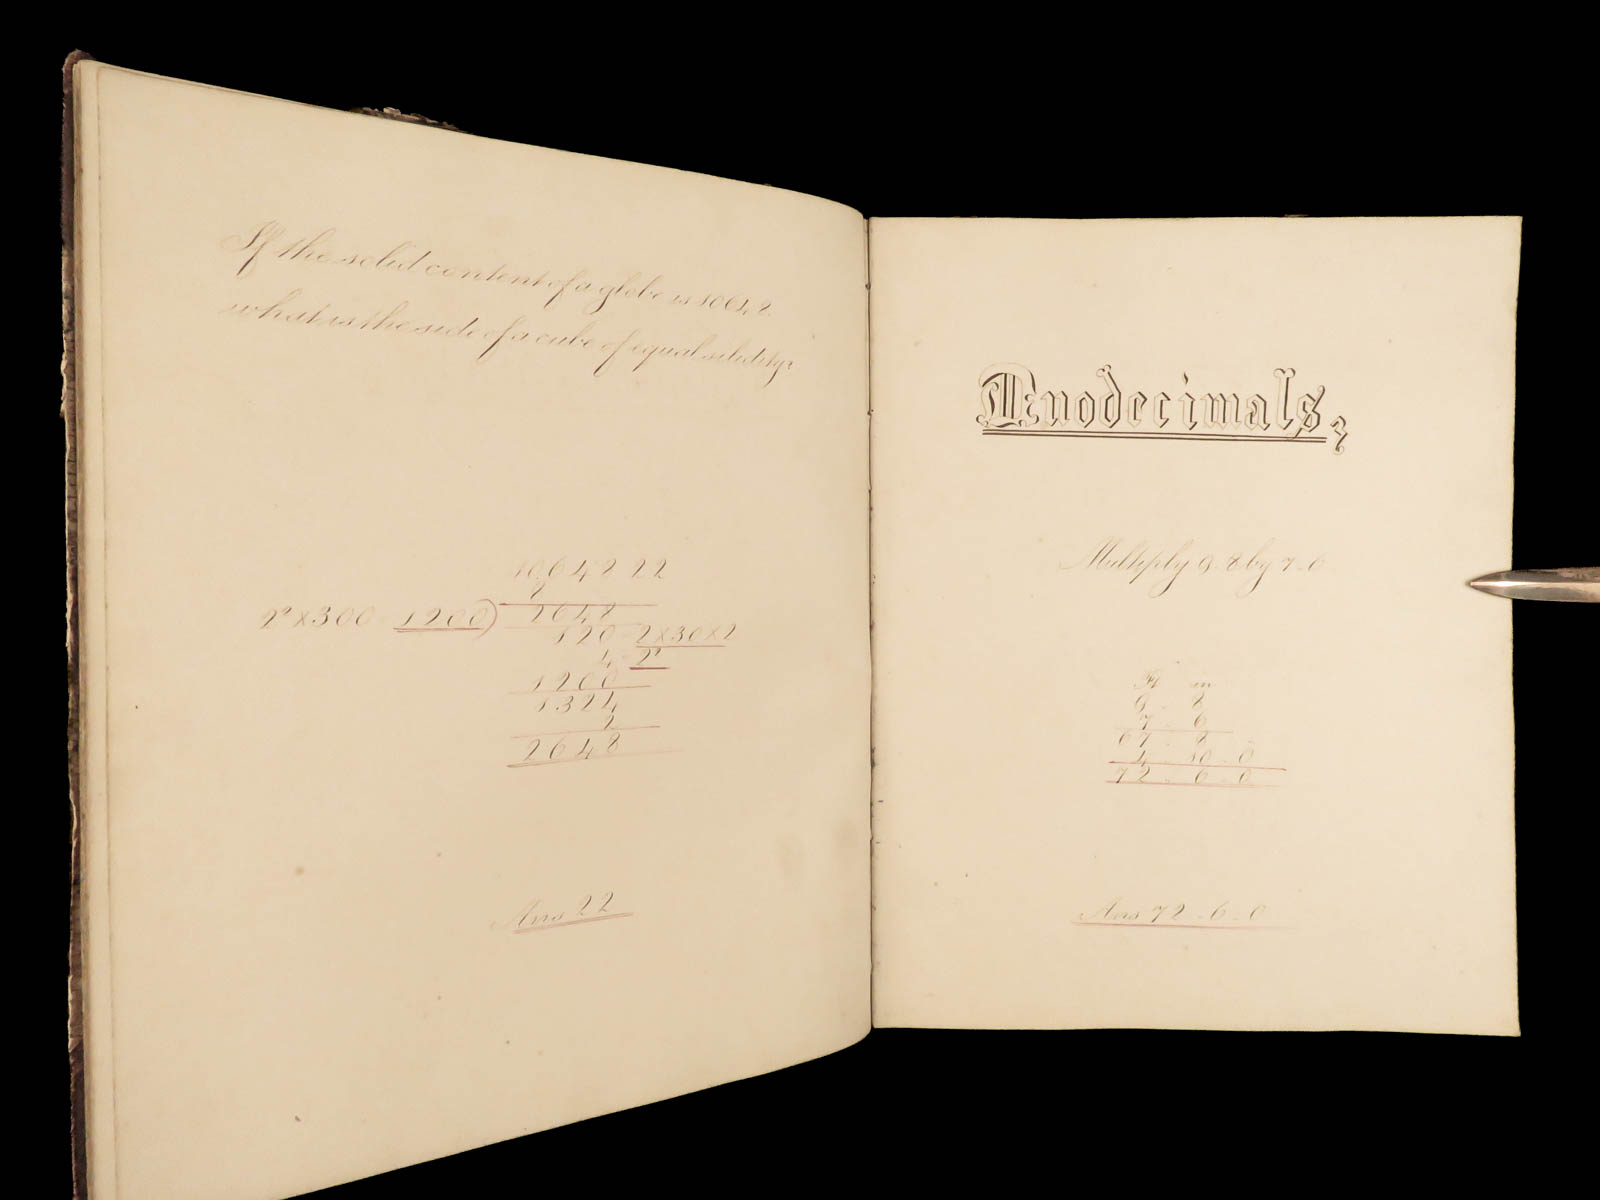 If the solid content of a globe is 10648
what is the side of a cube of equal solidity?
10,648 22
8
2²×300 1200) 2648
120 2×30×2
4 2²
1200
1324
2
2648
Ans 22
Duodecimals,
Multiply 9.8 by 7-6
Ft in
9 - 8
7 - 6
67 - 8
4 - 10 - 0
72 - 6 - 0
Ans 72 - 6 - 0